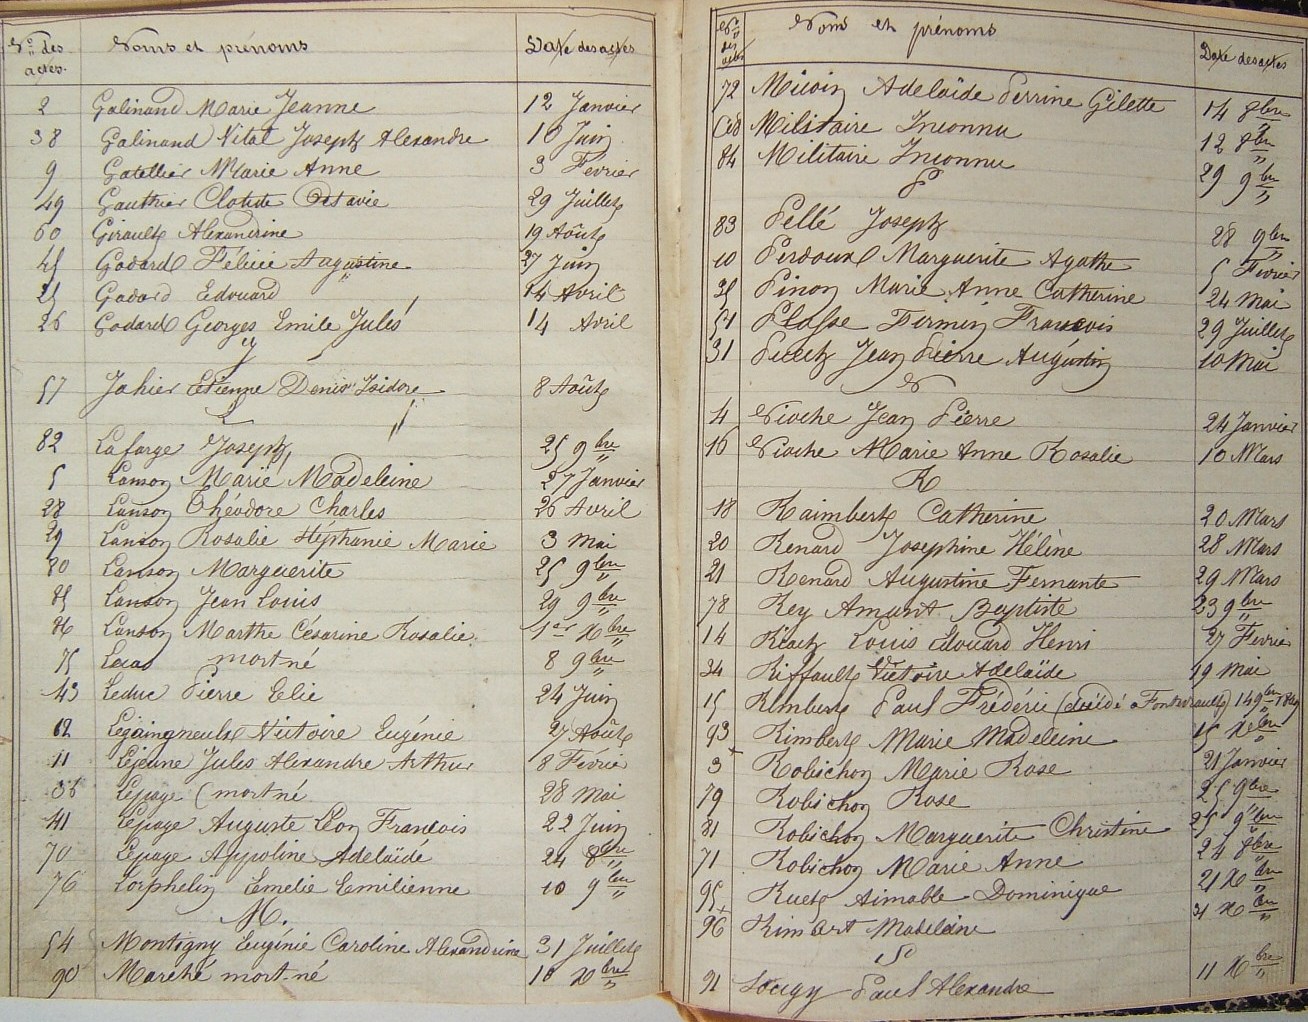 Nos des actes. Noms et prénoms Date des actes
2 Galinand Marie Jeanne 12 Janvier
38 Galinand Vital Joseph Alexandre 10 Juin
9 Gatellier Marie Anne 3 Fevrier
49 Gauthier Clotide Octavie 29 Juillet
60 Girault Alexandrine 19 Août
45 Godard Félicie Augustine 27 Juin
25 Godard Edouard 14 Avril
26 Godard Georges Emile Jules 14 Avril
J
57 Jahier Etienne Denis Isidore 8 Août
L
82 Lafarge Joseph 25 9bre
5 Lanson Marie Madeleine 27 Janvier
28 Lanson Théodore Charles 26 Avril
29 Lanson Rosalie Stéphanie Marie 3 Mai
80 Lanson Marguerite 25 9bre
85 Lanson Jean Louis 29 9bre
86 Lanson Marthe Césarine Rosalie 1er Xbre
75 Lucas mort né 8 9bre
43 Leduc Pierre Elie 24 Juin
62 Victoire Eugénie 27 Août
11 Lejeune Jules Alexandre Arthur 8 Février
Lepage (mort né 28 Mai
41 Lepage Auguste Léon François 22 Juin
70 Lepage Appoline Adelaïde 24 8bre
76 Lorphelin Emelie Emilienne 10 9bre
M.
54 Montigny Eugénie Caroline Alexandrine 31 Juillet
90 Marché mort né 10 Xbre
Nos des actes Noms et prénoms Date des actes
72 Micoin Adelaïde Perrine Gilette 14 8bre
68 Militaire Inconnu 12 8bre
84 Militaire Inconnu 29 9bre
P
83 Pellé Joseph 28 9bre
10 Perdoux Marguerite Agathe 5 Fevrier
35 Pinon Marie Anne Catherine 24 Mai
51 Plasse Firmin François 29 Juillet
31 Jean Pierre Augustin 10 Mai
N
4 Nioche Jean Pierre 24 Janvier
16 Nioche Marie Anne Rosalie 10 Mars
R
18 Raimbert Catherine 20 Mars
20 Renard Josephine Hélène 28 Mars
21 Renard Augustine Fernante 29 Mars
78 Rey Amant Baptiste 23 9bre
14 Louis Edouard Henri 27 Fevrier
34 Riffault Victoire Adelaïde 19 Mai
15 Rimbert Paul Frédéric (décédé a Fontevrault) 14 9bre
93 Rimbert Marie Madeleine 15 Xbre
3 Robichon Marie Rose 21 Janvier
79 Robichon Rose 25 9bre
81 Robichon Marguerite Christine 25 9bre
71 Robichon Marie Anne 24 8bre
95 Aimable Dominique 21 Xbre
96 Rimbert Madeleine 31 Xbre
S
91 Sougy Paul Alexandre 11 Xbre